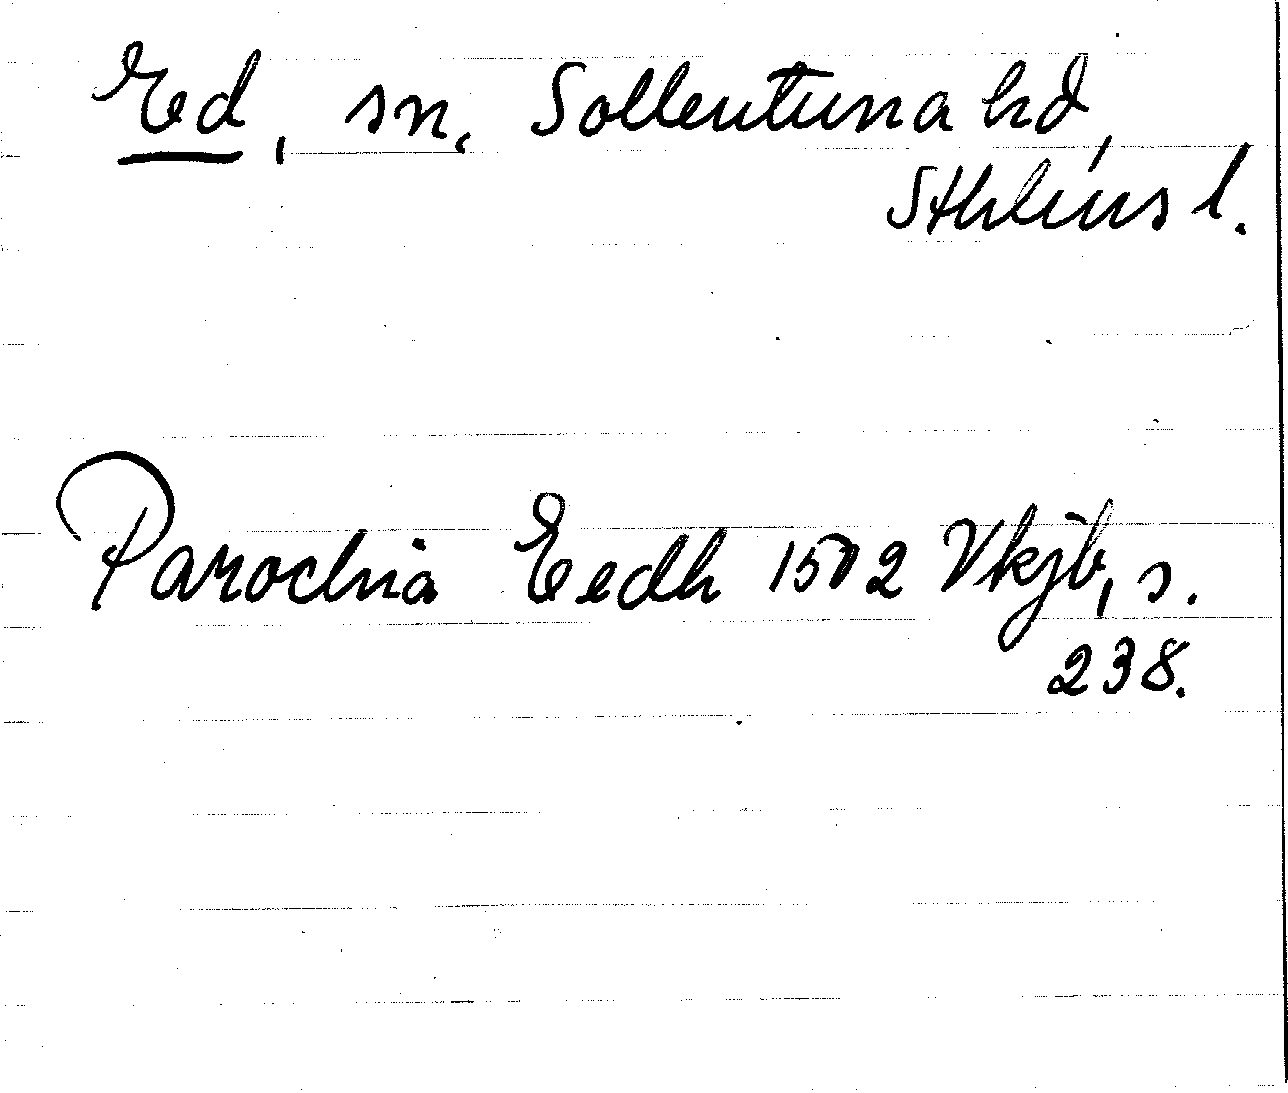 Ed, sn, Sollentuna hd,
Sthlms l.
Parochia Eedh 1502 Vkjb, s.
238.